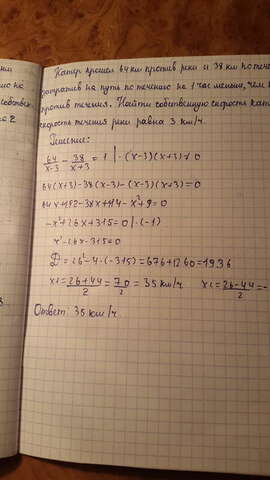 Катер прошел 64 км против реки и 38 км по тече
затратив на путь по течению на 1 час меньше, чем
против течения. Найти собственную скорость кат
скорость течения реки равна 3 км/ч.
Решение:
64/x-3 - 38/x+3 = 1 | · (x-3)(x+3) ≠ 0
64(x+3)-38(x-3)-(x-3)(x+3)=0
64x+192-38x+114-x²+9=0
-x²+26x+315=0 | ·(-1)
x²-26x-315=0
D=26²-4·(-315)=676+1260=1936
x1=26+44/2=70/2=35 км/ч x2=26-44/2=-
Ответ 35 км/ч